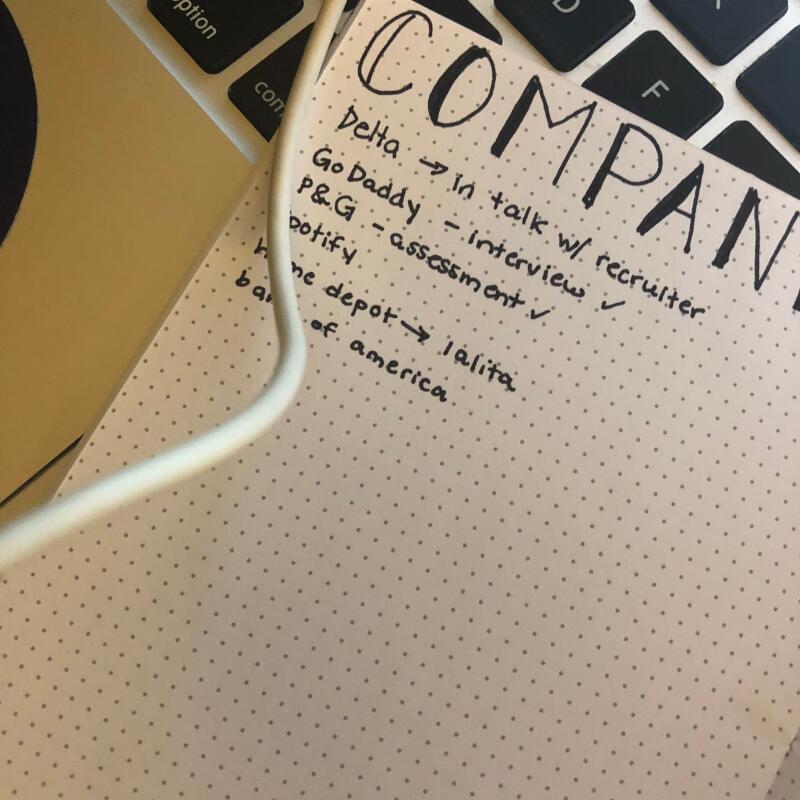 option
com
D
F
COMPAN
Delta → in talk w/ recruiter
GoDaddy - interview ✓
P&G - assessment ✓
potify
h me depot → lalita
ba of america